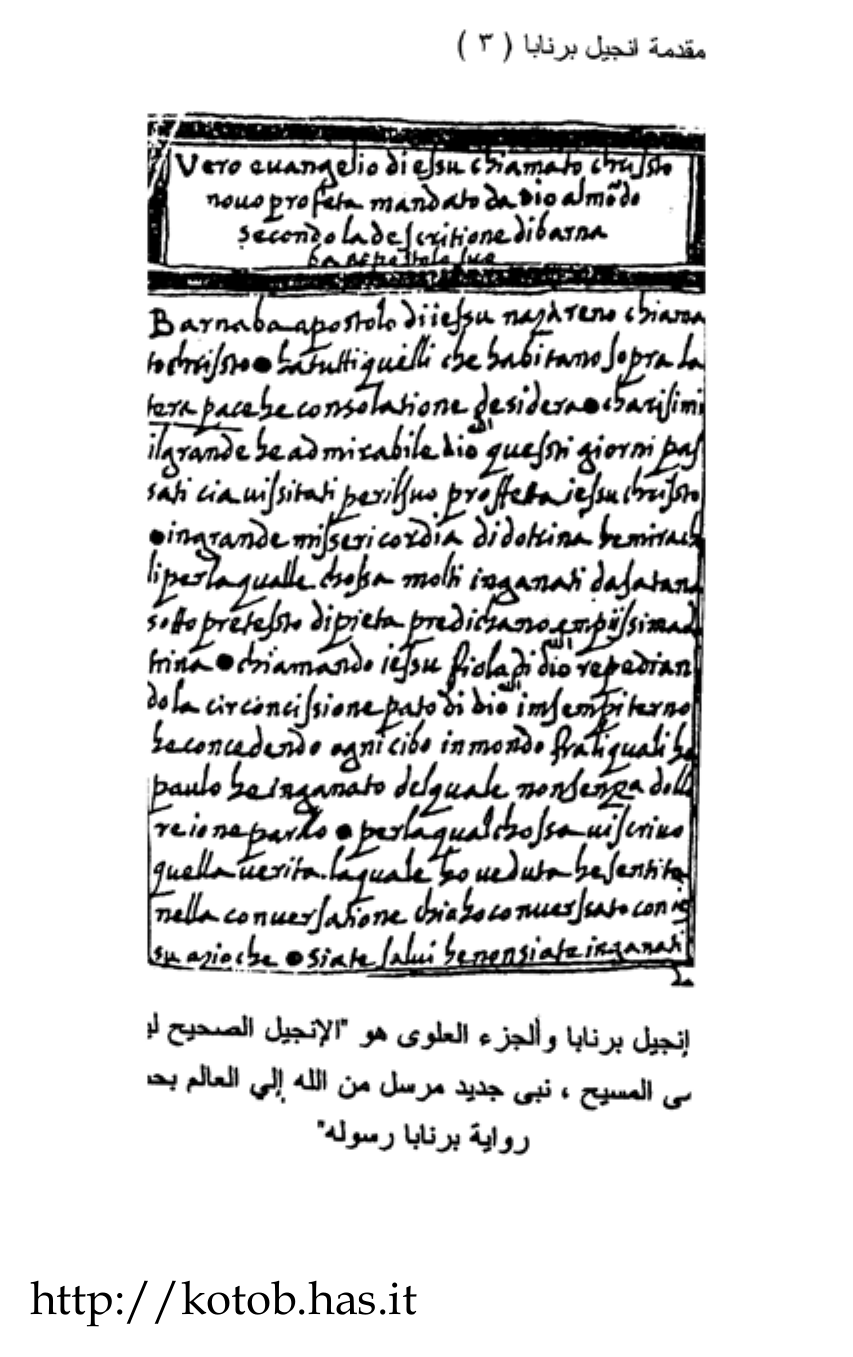 مقدمة انجيل برنابا ( ٣ )
Vero euangelio di essu chiamato chrissto
nouo profeta mandato da dio al mõdo
secondo la descritione di barna
ba apostolo suo
Barnaba apostolo di iessu nazareno chiama
to chrissto ● ha tutti quelli che habitano sopra la
tera pace he consolatione desidera ● charisimi
il grande he admirabile dio الله questi giorni pas
sati cia uissitati per il suo proffeta iessu chrissto
● in grande misericordia di dotrina he mirach
li per la qualle chossa molti inganati da satana
sotto pretessto di pieta predichano empiissima
trina ● chiamando iessu fiolo di dio الله repudian
do la circoncissione pato di dio الله in sempiterno
he concedendo ogni cibo inmondo fra li quali he
paulo he inganato del quale non senza doll
re io ne parlo ● per la qual chossa ui scriuo
quella uerita la quale ho ueduta he sentita
nella conuersatione chio ho conuerssato con ie
su azio che ● siate salui he non siate inganati
إنجيل برنابا وألجزء العلوى هو "الإنجيل الصحيح
المسيح ، نبى جديد مرسل من الله إلي العالم
رواية برنابا رسوله"
http://kotob.has.it